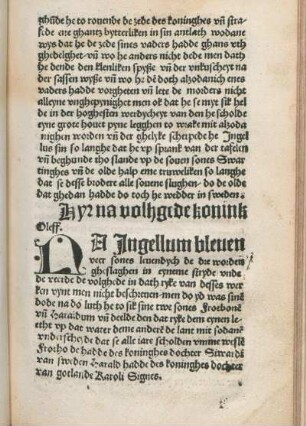 ghude he to rouende de zede des koninghes vn stra-
fede ene ghantz bytterliken in sin antlath wodane
wys dat he de zede sines vaders hadde ghans vth
ghedelghet vn wo he anders nicht dede men dath
he dende den slenliken spyse vn der vnkuscheyt na
der sassen wyse vn wo he den doth alzodanich enes
vaders hadde vorgheten vn lete de morders nicht
alleyne vnghepynighet men ok dat he se myt sik hel
de in der hoghesten werdycheyt van den he scholde
eyne grote houet pyne legghen to wrake mit aldo
nighen worden vn der ghelyke scherpede he Ingel
lus sin so langhe dat he vp sprank van der tafelen
vn beghunde tho slande vp de souen sones Swar
tinghes vn de olde halp eme truweliken so langhe
dat se desse brodere alle souene slughen do de olde
dat ghedan hadde do toch he wedder in sweden
Hyr na volhgede konink
Oleff.
NA Ingellum bleuen
veer sones leuendych de dre worden
gheslaghen in eyneme stryde vnde
de veerde de volghede in dath ryke van desses wer
ken vynt men nicht bescheuen men do yd was sine
dode na do luth he to sik sine twe sones Frothone
vn Haraldum vn deelde den dat ryke dem eynen le
ethe vp dat water deme andere de lant mit sodane
vnderschede dat se alle iare scholden vmme wesle
Frotho de hadde des koninghes dochter Siwardi
van sweden Harald hadde des koninghes dochter
van gotlande Karoli Signes.